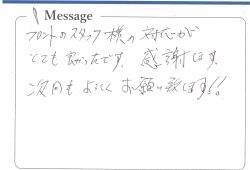 Message
フロントのスタッフ様の対応がとても良かったです。感謝します。
次回もよろしくお願い致します!!